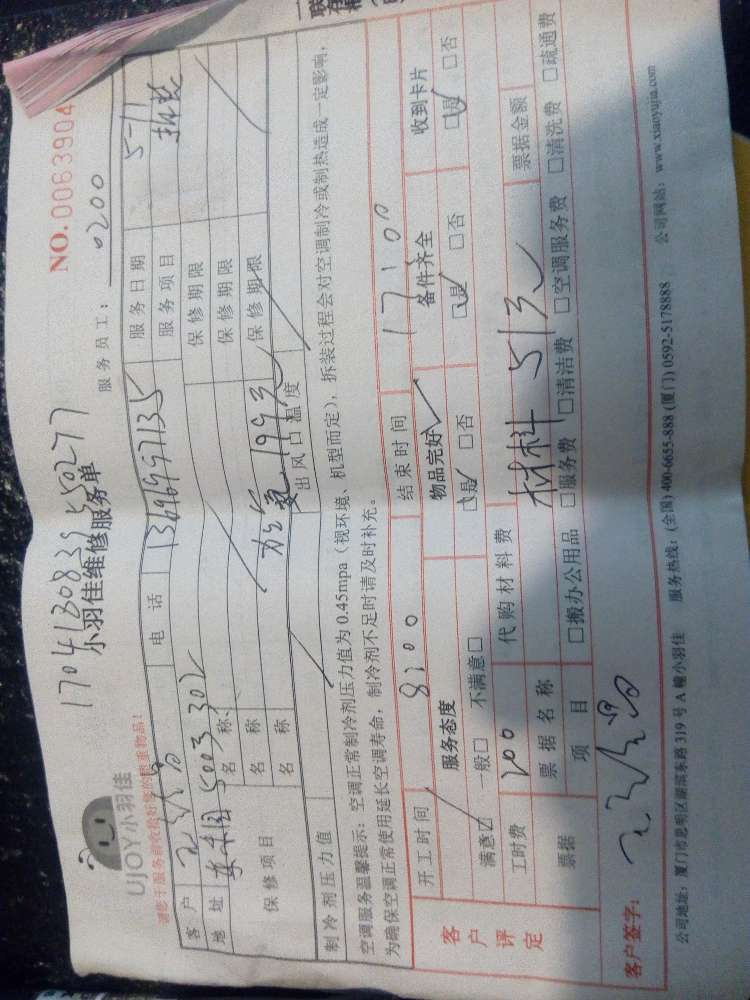 1704130833550277
NO.0063904
UJOY小羽佳
小羽佳维修服务单
服务员工：0200
请您于服务前收拾好您的贵重物品！
客户 电话 13696997135 服务日期 5-11
地址 5003 302 服务项目 拆装
保修项目 名称 保修期限
名称 保修期限
名称 保修期限
制冷剂压力值 加氨 199元 出风口温度
空调服务温馨提示：空调正常制冷剂压力值为 0.45mpa（视环境、机型而定），拆装过程会对空调制冷或制热造成一定影响，
为确保空调正常使用延长空调寿命，制冷剂不足时请及时补充。
客户评定 开工时间 8:00 结束时间 17:00
服务态度 物品完好 备件齐全 收到卡片
满意☑ 一般□ 不满意□ ☑是 □否 ☑是 □否 ☑是 □否
工时费 200 代购材料费 材料 513元
票据 票据名称 票据金额
项目 □搬办公用品 □服务费 □清洁费 □空调服务费 □清洗费 □疏通费
客户签字：
公司地址：厦门市思明区湖滨东路 319 号 A 幢小羽佳 服务热线：(全国) 400-6655-888 (厦门) 0592-5178888 公司网站：www.xiaoyujia.com